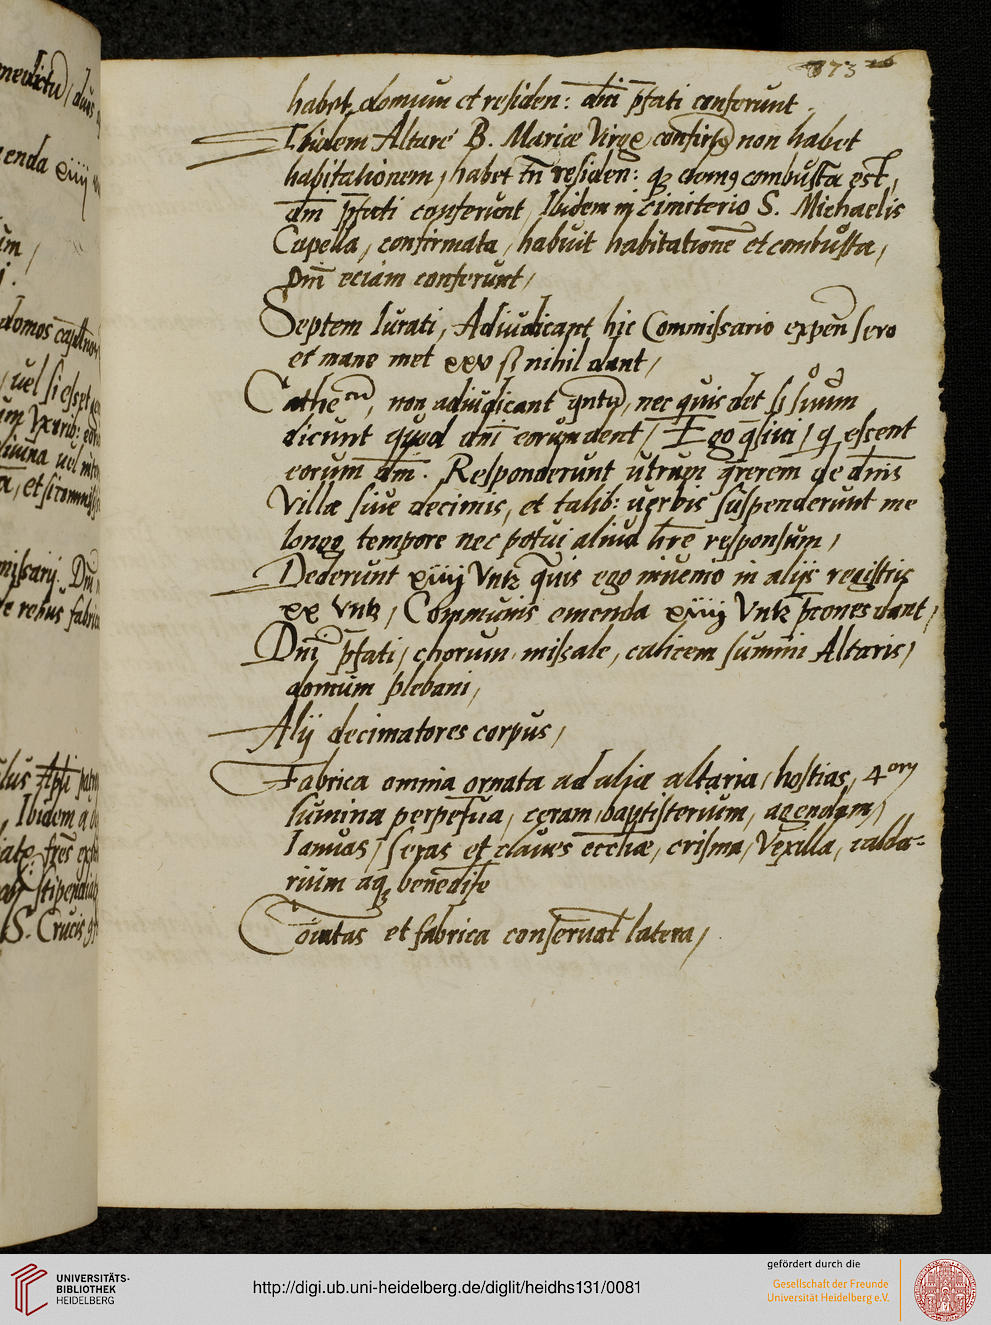 habet domum et residen: dni pfati conferunt.
Ibidem Altare B. Mariæ Virgs non habet
habitationem, habet tn residen: qz domq combusta est,
dni pfati conferunt, Ibidem in cimiterio S. Michaelis
Capella, confirmata, habuit habitatione et combusta,
Dni eciam conferunt,
Septem Iurati, Adiudicant hic Commissario expen sero
et mane met xxv ß nihil dant,
non adiudicant nec quis det si suum
dicunt quod dni eorum dent, Ego qsiui, q essent
eorum dni. Responderunt utrum qrerem de dnis
Villæ siue decimis, et talib: uerbis suspenderunt me
longo tempore nec potui aliud hre responsum,
Dederunt xiiij Vntz quis ego inuenio in alijs registris
xx Vntz, Communis emenda xiiij Vntz pcones dant,
Dni pfati, chorum, missale, calicem summi Altaris,
domum plebani,
Alij decimatores corpus,
Fabrica omnia ornata ad alia altaria, hostias, 4or
lumina perpetua, ceram, baptisterium, azendam,
Ianuas, seras et claues eccliæ, crisma, Vexilla, calda-
rium aq benedicte
Coitas et fabrica conseruat latera,
UNIVERSITÄTS-
BIBLIOTHEK
HEIDELBERG
http://digi.ub.uni-heidelberg.de/diglit/heidhs131/0081
gefördert durch die
Gesellschaft der Freunde
Universität Heidelberg e.V.